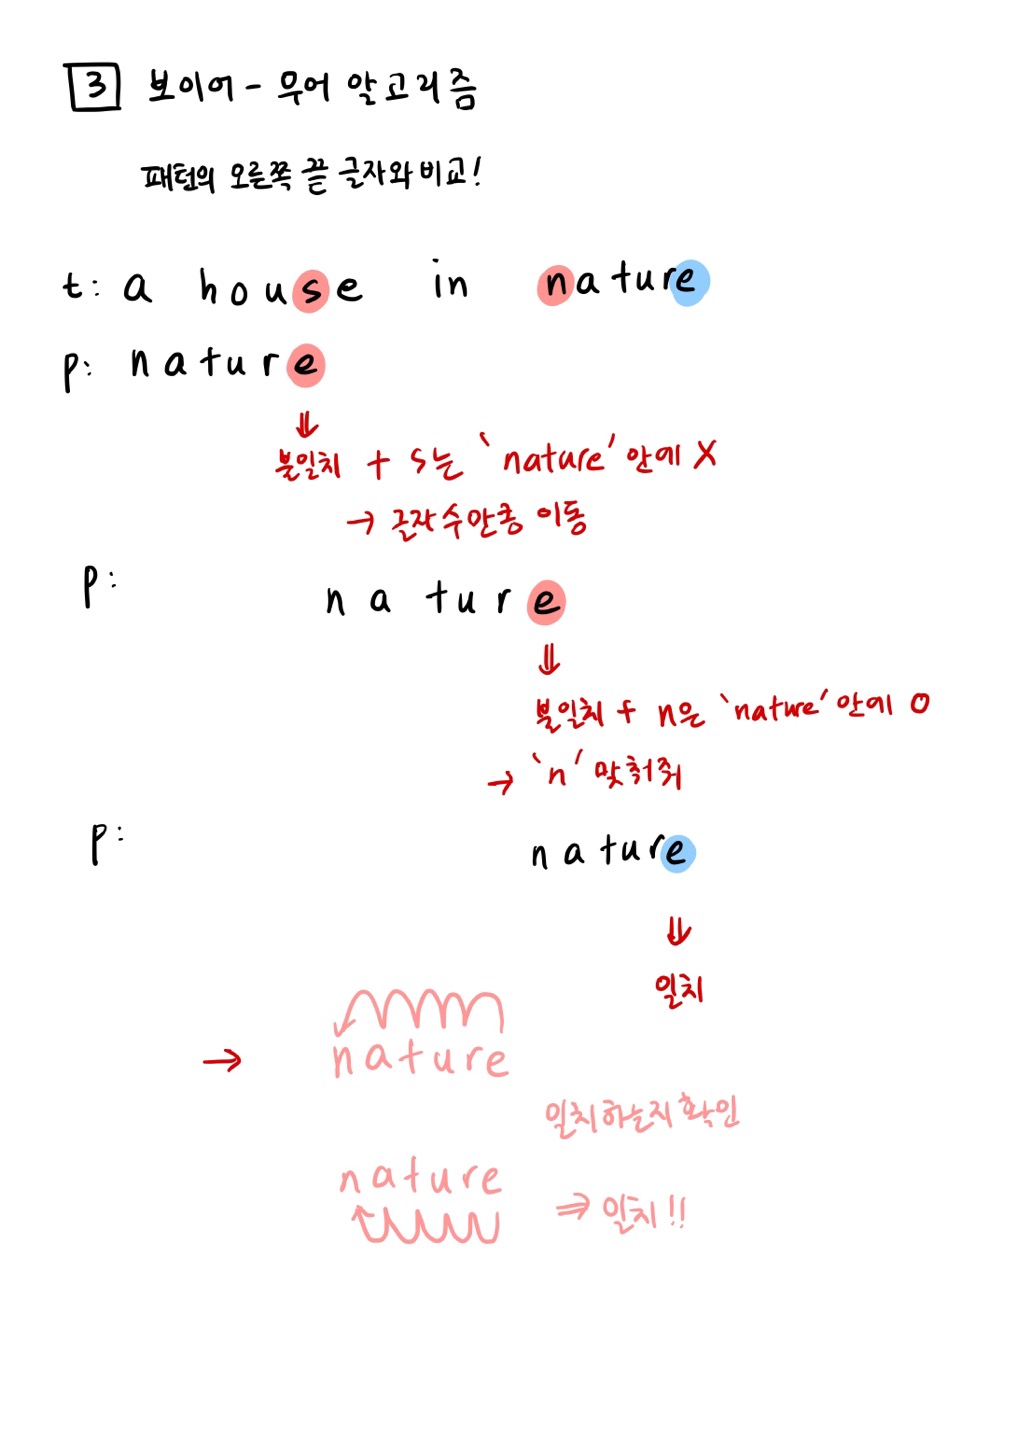 3 보이어 - 무어 알고리즘
패턴의 오른쪽 끝 글자와 비교!
t: a house in nature
p: nature
불일치 + s는 'nature' 안에 X
→ 글자 수만큼 이동
p: nature
불일치 + n은 'nature' 안에 O
→ 'n' 맞춰줘
p: nature
일치
→ nature
일치하는지 확인
nature
⇒ 일치!!